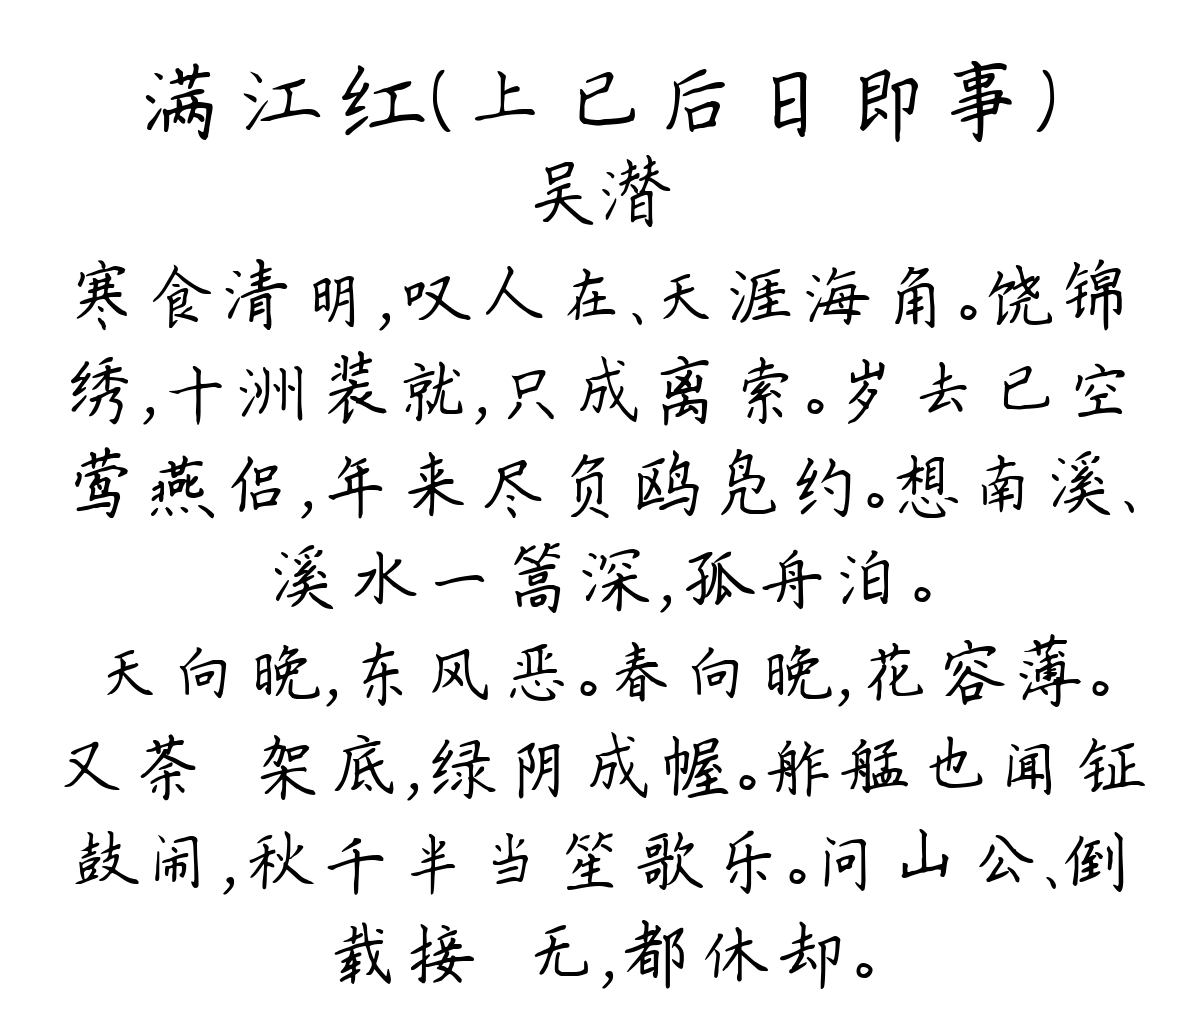 满江红(上已后日即事)
吴潜
寒食清明,叹人在、天涯海角。饶锦
绣,十洲装就,只成离索。岁去已空
莺燕侣,年来尽负鸥凫约。想南溪、
溪水一篙深,孤舟泊。
天向晚,东风恶。春向晚,花容薄。
又荼 架底,绿阴成幄。舴艋也闻钲
鼓闹,秋千半当笙歌乐。问山公、倒
载接 无,都休却。